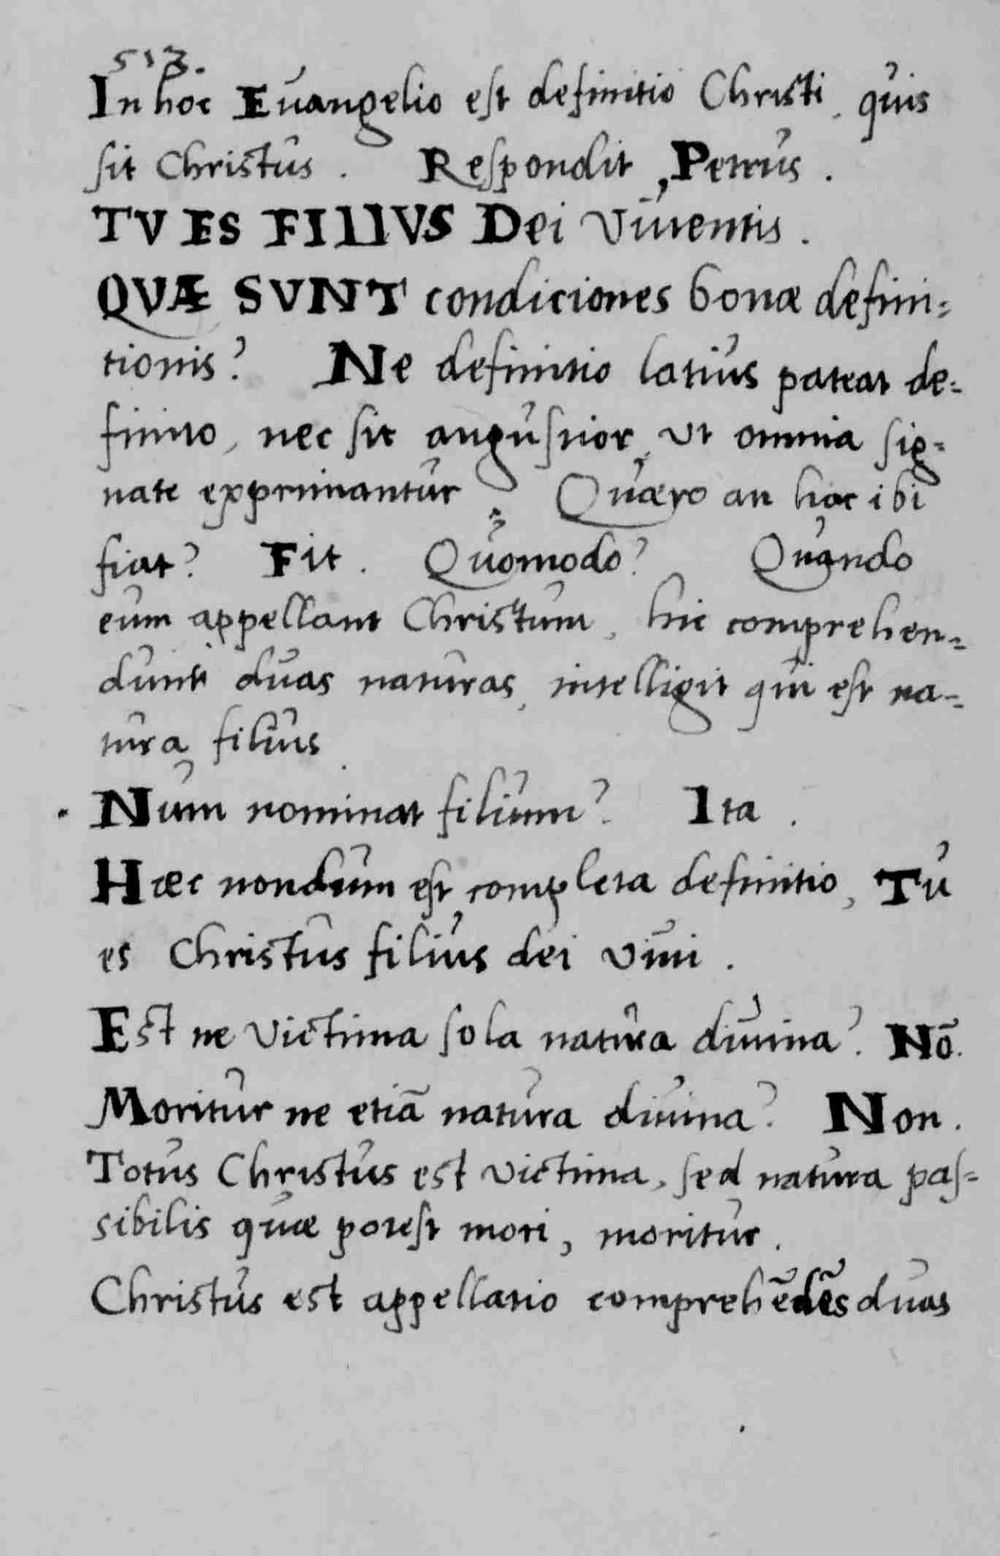 513.
In hoc Euangelio est definitio Christi, quis
sit Christus. Respondit, Petrus.
TV ES FILIVS Dei viuentis.
QVÆ SVNT condiciones bonæ defini-
tionis? Ne definitio latius pateat de-
finito, nec sit angustior, ut omnia sig-
nate exprimantur? Quæro an hoc ibi
fiat? Fit. Quomodo? Quando
eum appellant Christum, hic comprehen-
dunt duas naturas, intelligit qui est na-
tura filius
Num nominat filium? Ita.
Hæc nondum est completa definitio, Tu
es Christus filius dei viui.
Est ne victima sola natura diuina? Nō.
Moritur ne etiā natura diuina? Non.
Totus Christus est victima, sed natura pas-
sibilis quæ potest mori, moritur.
Christus est appellatio comprehēdēs duas